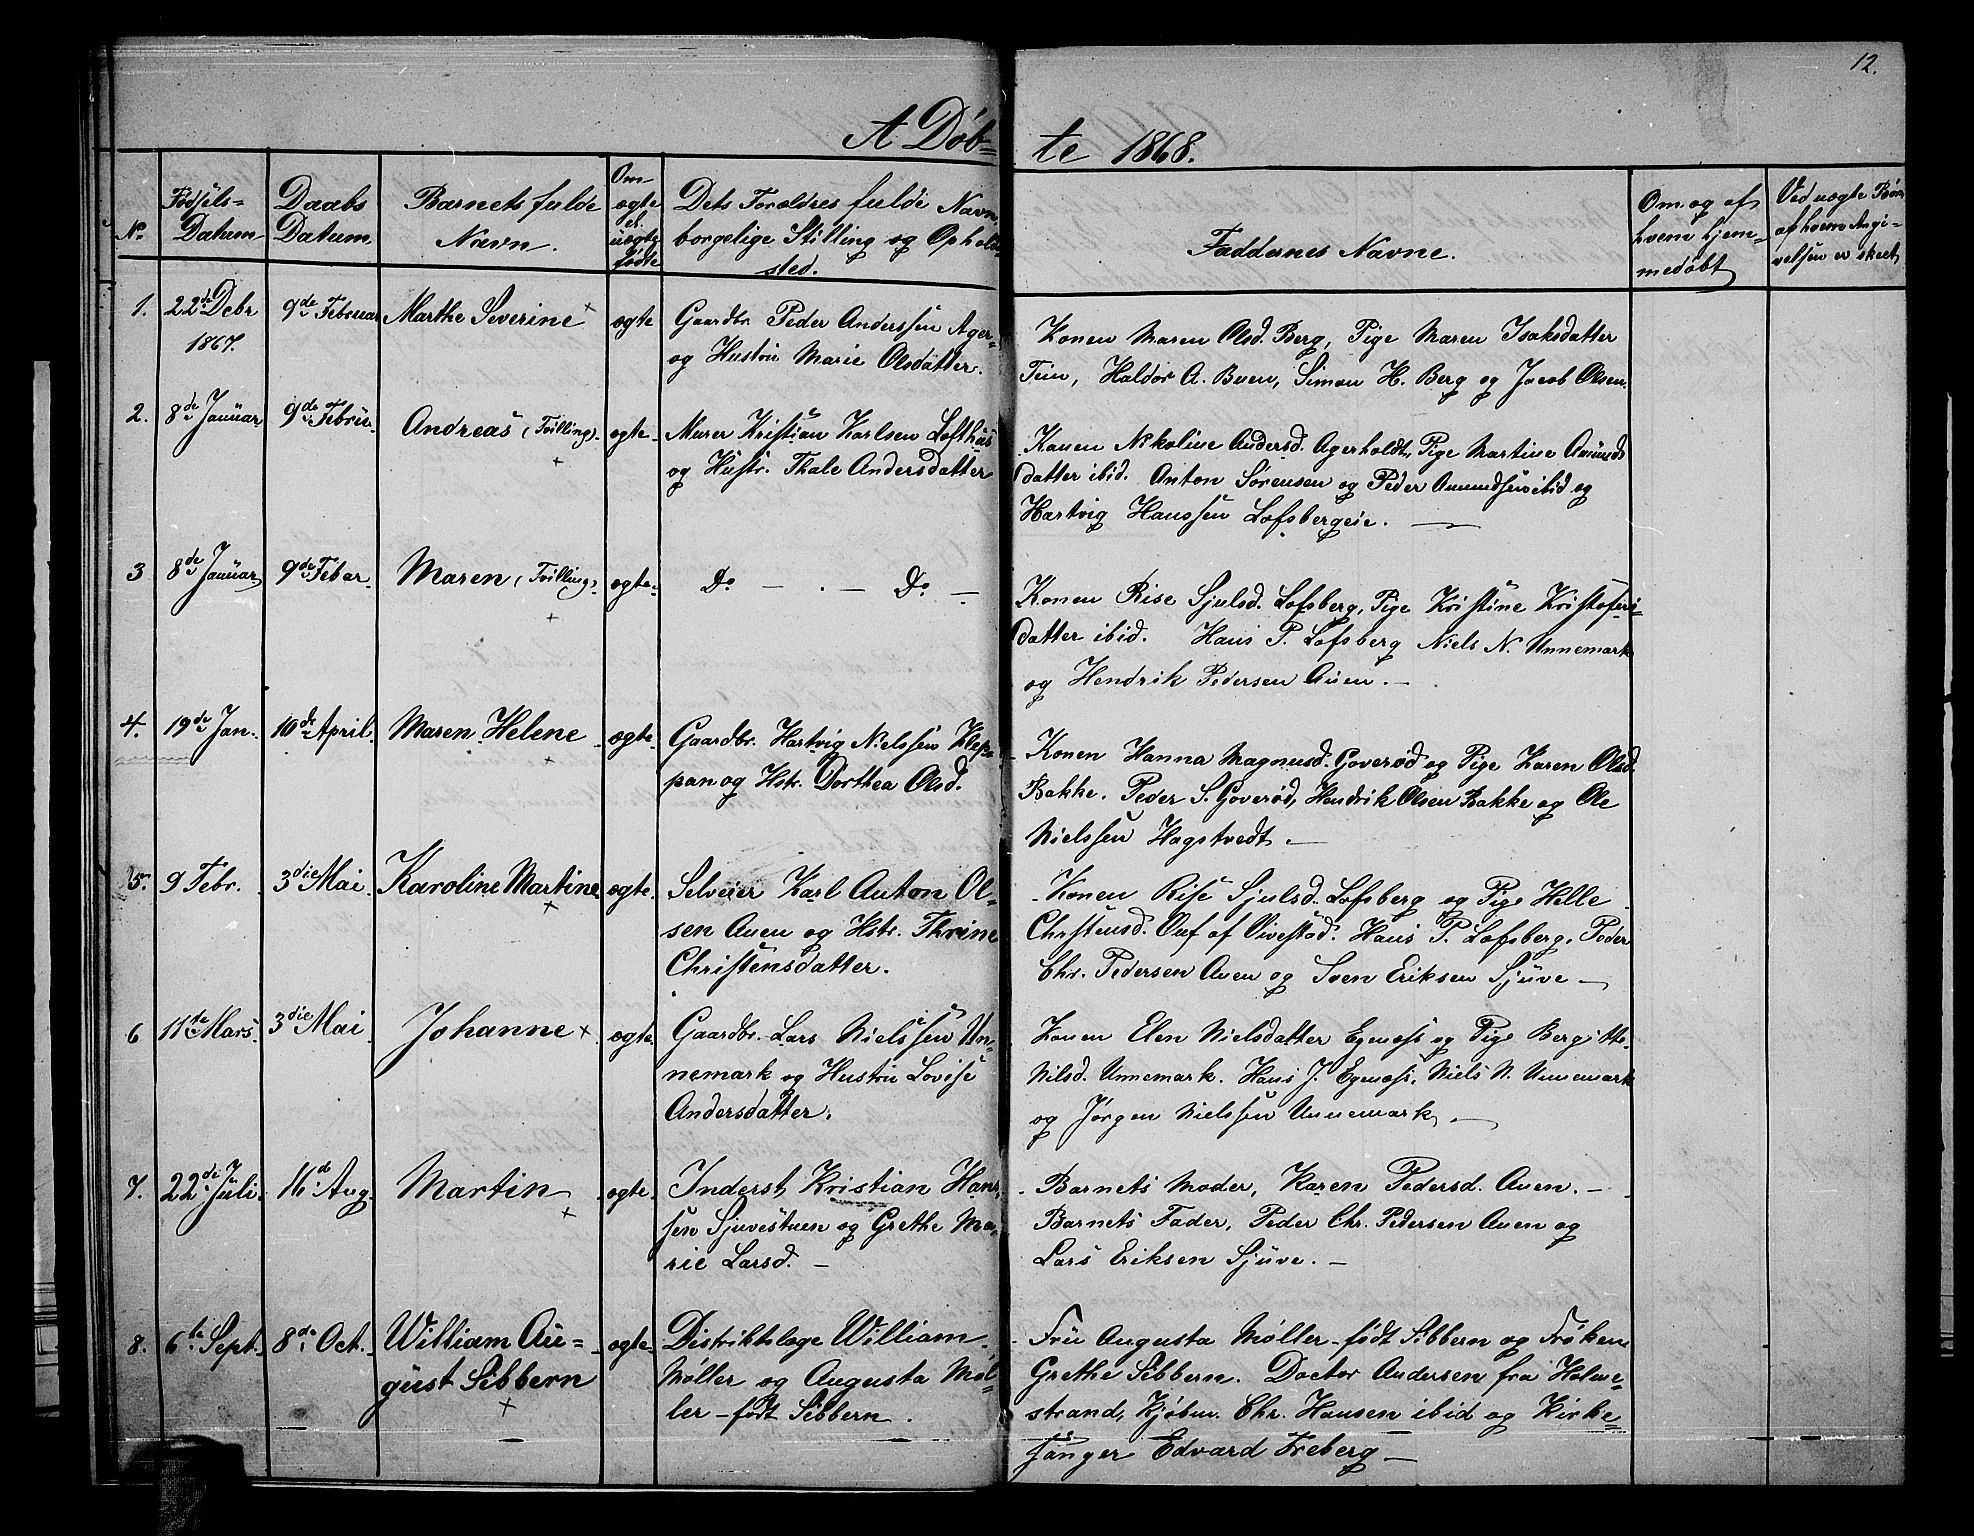 12.
A Døb=
te 1868.
No
Fødsels=
Datum
Daabs
Datum
Barnets fulde
Navn.
Om
ægte
el.
uægte
fødte
Dets Forældres fulde Navn,
borgelige Stilling og Opholds
sted.
Faddernes Navne.
Om og af
hvem hjem-
medøbt
Ved uægte Børn
af hvem Angi-
velsen er skeet
1.
22de Debr
1867.
9de Februar
Marthe Severine
ægte
Gaardbr. Peder Anderssen Ager-
og Hustru Marie Olsdatter.
Konen Maren Olsd. Berg, Pige Maren Isaksdatter
Tein, Haldor A. Buen, Simon H. Berg og Jacob Olsen.
2.
8de Januar
9de Febru-
Andreas (Tvilling).
ægte-
Murer Kristian Karlsen Lofthus
og Hustr. Thale Andersdatter
Konen Nikoline Andersd. Agerholdt, Pige Martine Amunds
datter ibid. Anton Sørensen og Peder Amundsen ibid og
Hartvig Hanssen Lofsbergeie.
3
8de Januar
9de Febar-
Maren (Tvilling)
ægte-
Do - . - Do -
Konen Rise Sjulsd. Lofsberg, Pige Kristine Kristofers-
datter ibid. Hans P. Lofsberg Niels N. Unnemark
og Hendrik Pedersen Auen.-
4.
19de Jan.
10de April.
Maren Helene
ægte-
Gaardbr. Hartvig Nielssen Klep-
pan og Hstr. Dorthea Olsd.
Konen Hanna Magnusd. Goverød og Pige Karen Olsd.
Bakke. Peder S. Goverød, Hendrik Olsen Bakke og Ole
Nielssen Hagstvedt.-
5.
9 Febr.
3die Mai.
Karoline Martine
ægte.
Selveier Karl Anton Ol-
sen Auen og Hstr. Thrine
Christensdatter.
Konen Rise Sjulsd. Lofsberg og Pige Helle
Christensd. Auf af Vivestad. Hans P. Lofsberg, Peder
Chr. Pedersen Auen og Sven Eriksen Sjuve -
6
11te Mars.
3die Mai
Johanne
ægte
Gaardbr. Lars Nielssen Un-
nemark og Hustru Lovise
Andersdatter.
Konen Elen Nielsdatter Egenæss og Pige Bergitte
Nilsd. Unnemark. Hans J. Egenæss, Niels N. Unnemark
og Jørgen Nielssen Unnemark. -
7.
22de Juli.
16d Aug.
Martin
ægte-
Inderst, Kristian Hans-
sen Sjuvestuen og Grethe Ma-
rie Larsd. -
Barnets Moder, Karen Pedersd. Auen. -
Barnets Fader, Peder Chr. Pedersen Auen og
Lars Eriksen Sjuve. -
8.
6te Sept.
8de Oct.
William Au=
gust Sibbern
ægte-
Distriktslæge William
Møller og Augusta Møl-
ler - født Sibbern.
Fru Augusta Møller - født Sibbern og Frøken
Grethe Sibbern. Doctor Andersen fra Holme-
strand, Kjøbm. Chr. Hansen ibid og Kirke=
sanger Edvard Freberg -